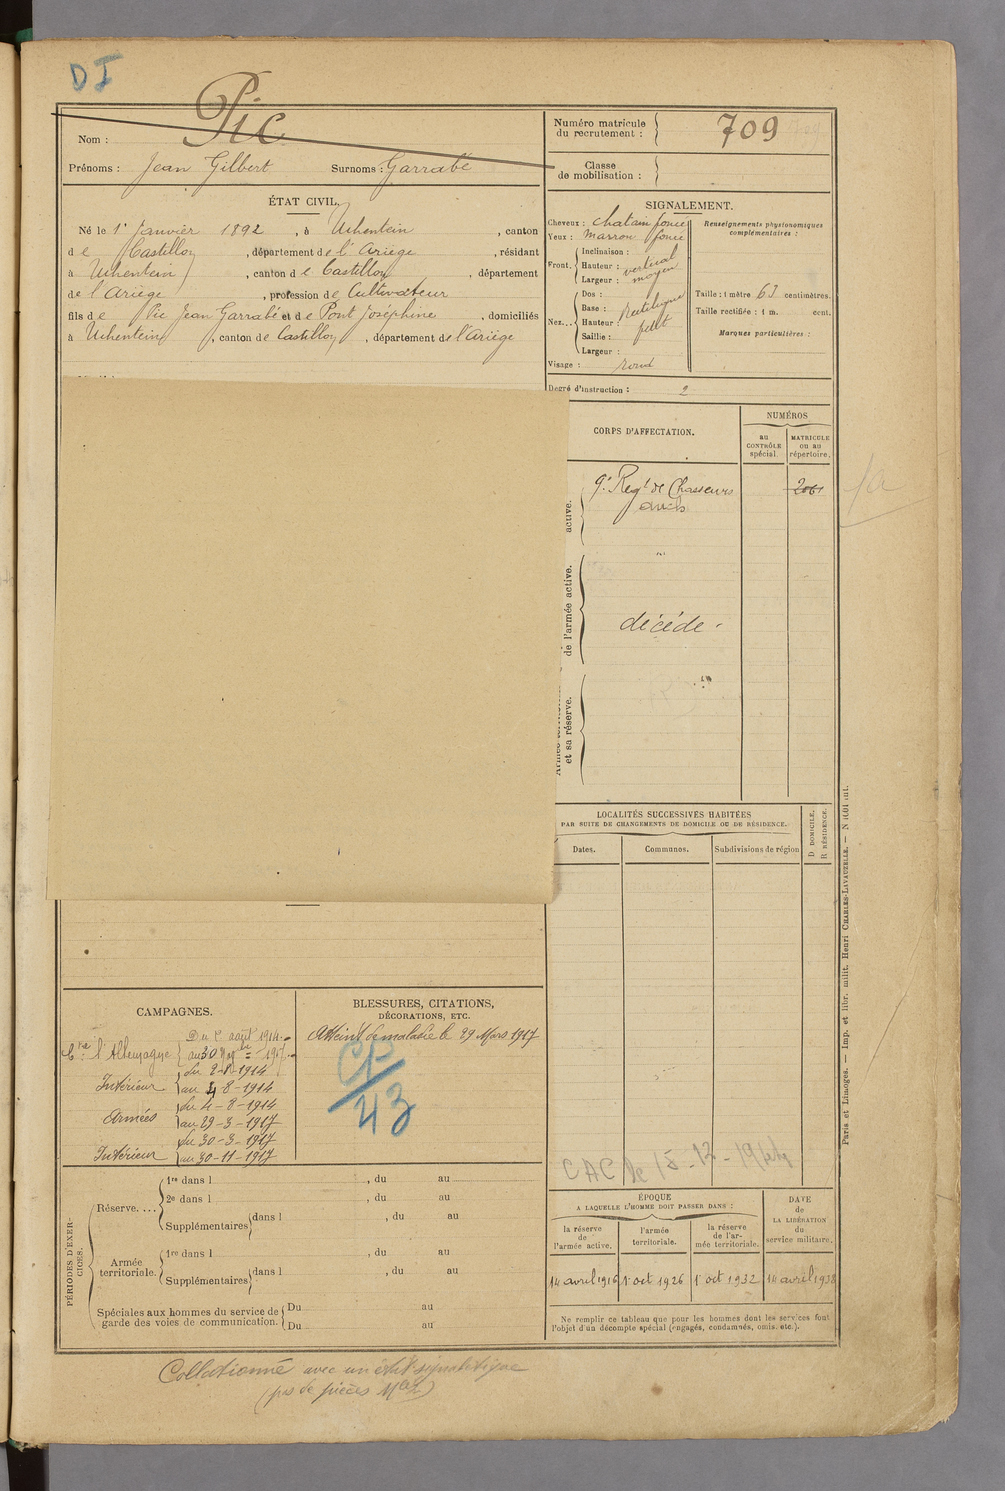 DI
Nom : Pic
Prénoms : Jean Gilbert Surnoms : Garrabé
ÉTAT CIVIL.
Né le 1r Janvier 1892, à Uchentein, canton
de Castillon, département de l'Ariège, résidant
à Uchentein, canton de Castillon, département
de l'Ariège, profession de Cultivateur
fils de Pic Jean Garrabé et de Pont Joséphine, domiciliés
à Uchentein, canton de Castillon, département de l'Ariège
Numéro matricule du recrutement : 709
Classe de mobilisation :
SIGNALEMENT.
Cheveux : chatain foncé
Yeux : marron foncé
Front.
Inclinaison : vertical
Hauteur : moyen
Largeur :
Nez...
Dos : Rectiligne
Base :
Hauteur : petit
Saillie :
Largeur :
Visage : rond
Renseignements physionomiques
complémentaires :
Taille : 1 mètre 63 centimètres.
Taille rectifiée : 1 m. cent.
Marques particulières :
Degré d'instruction : 2
CORPS D'AFFECTATION.
NUMÉROS
au CONTRÔLE spécial.
MATRICULE ou au répertoire.
active.
9e Regt de Chasseurs
de l'armée active.
décédé
et sa réserve.
1a
LOCALITÉS SUCCESSIVES HABITÉES
PAR SUITE DE CHANGEMENTS DE DOMICILE OU DE RÉSIDENCE.
Dates.
Communes.
Subdivisions de région
D DOMICILE.
R RÉSIDENCE.
CAMPAGNES.
Du 2 août 1914
Cne l'Allemagne au 30 9bre 1917
Intérieur du 2-8-1914
au 4-8-1914
Armées du 4-8-1914
au 29-3-1917
Intérieur du 30-3-1917
au 30-11-1917
BLESSURES, CITATIONS,
DÉCORATIONS, ETC.
Atteint de maladie le 29 Mars 1917
CP
43
CAC le 15-12-1944
PÉRIODES D'EXERCICES.
Réserve....
1re dans l , du au
2e dans l , du au
Supplémentaires dans l , du au
Armée territoriale.
1re dans l , du au
Supplémentaires dans l , du au
Spéciales aux hommes du service de
garde des voies de communication.
Du au
Du au
ÉPOQUE
A LAQUELLE L'HOMME DOIT PASSER DANS :
la réserve de l'armée active.
l'armée territoriale.
la réserve de l'armée territoriale.
DATE de LA LIBÉRATION du service militaire.
14 avril 1916
1r oct 1926
1r oct 1932
14 avril 1938
Ne remplir ce tableau que pour les hommes dont les services font
l'objet d'un décompte spécial (engagés, condamnés, omis, etc.).
Paris et Limoges. — Imp. et libr. milit. Henri CHARLES-LAVAUZELLE. —
Collationné avec un état signalétique
(pas de pièces Mles)